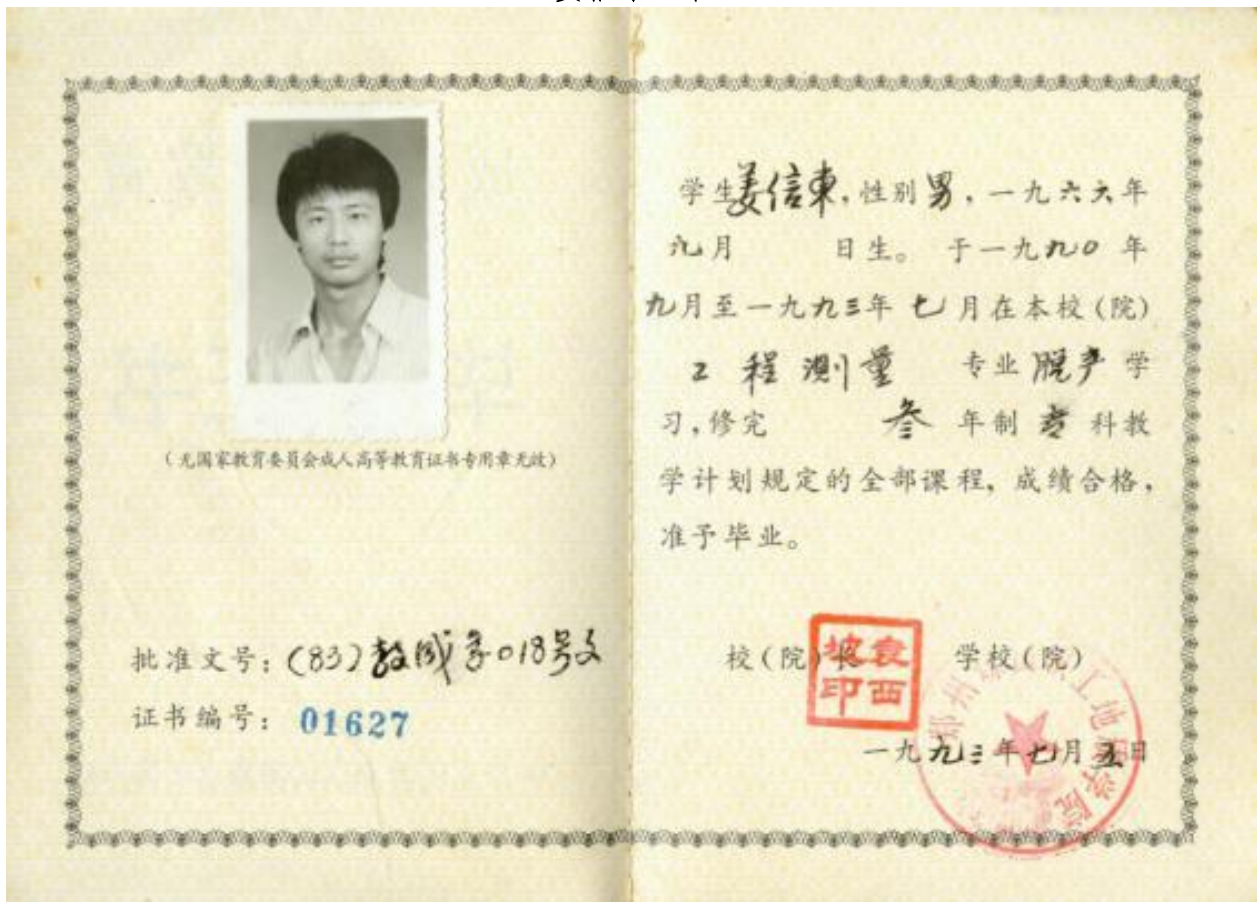 （无国家教育委员会成人高等教育证书专用章无效）
批准文号：(83)教成字018号文
证书编号：01627
学生姜信東，性别男，一九六六年
九月 日生。于一九九0年
九月至一九九三年七月在本校（院）
工程测量 专业脱产学
习，修完 叁 年制专科教
学计划规定的全部课程，成绩合格，
准予毕业。
校（院）长 学校（院）
袁西坡印
一九九三年七月五日